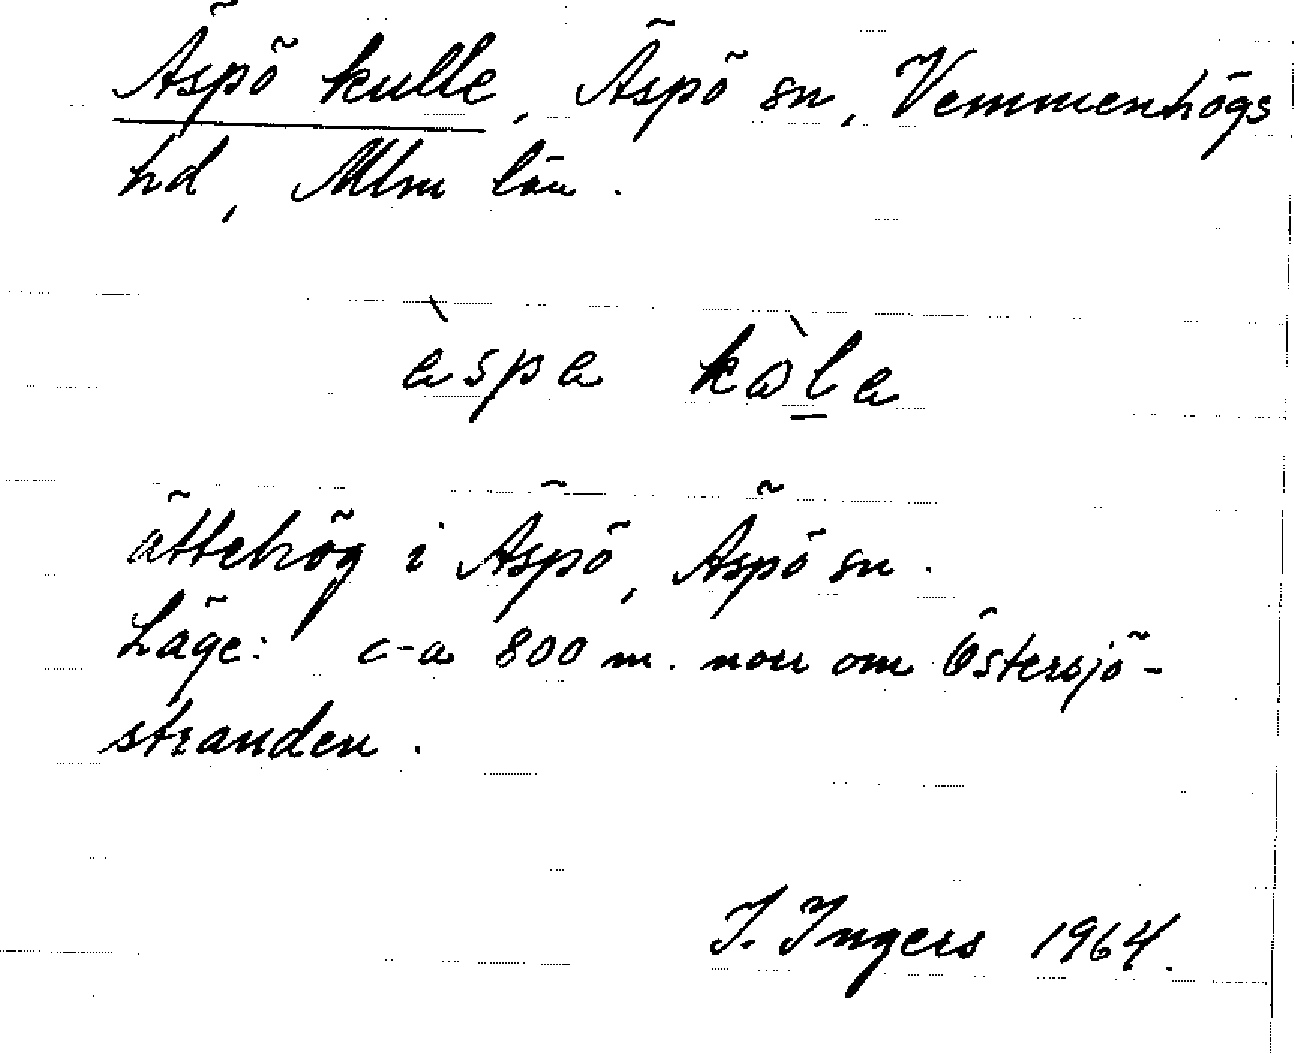 Äspö kulle, Äspö sn, Vemmenhögs
hd, Mlm län.
àspa kòla
ättehög i Äspö, Äspö sn.
Läge: c-a 800 m. norr om Östersjö-
stranden.
I. Ingers 1964.